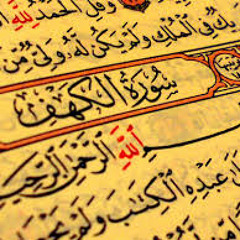 وَقُلِ ٱلْحَمْدُ لِلَّهِ
فِى ٱلْمُلْكِ وَلَمْ يَكُن لَّهُۥ وَلِىٌّ مِّنَ
سُورَةُ ٱلْكَهْفِ
ٱللَّهِ ٱلرَّحْمَٰنِ ٱلرَّحِيمِ
عَبْدِهِ ٱلْكِتَٰبَ وَلَمْ